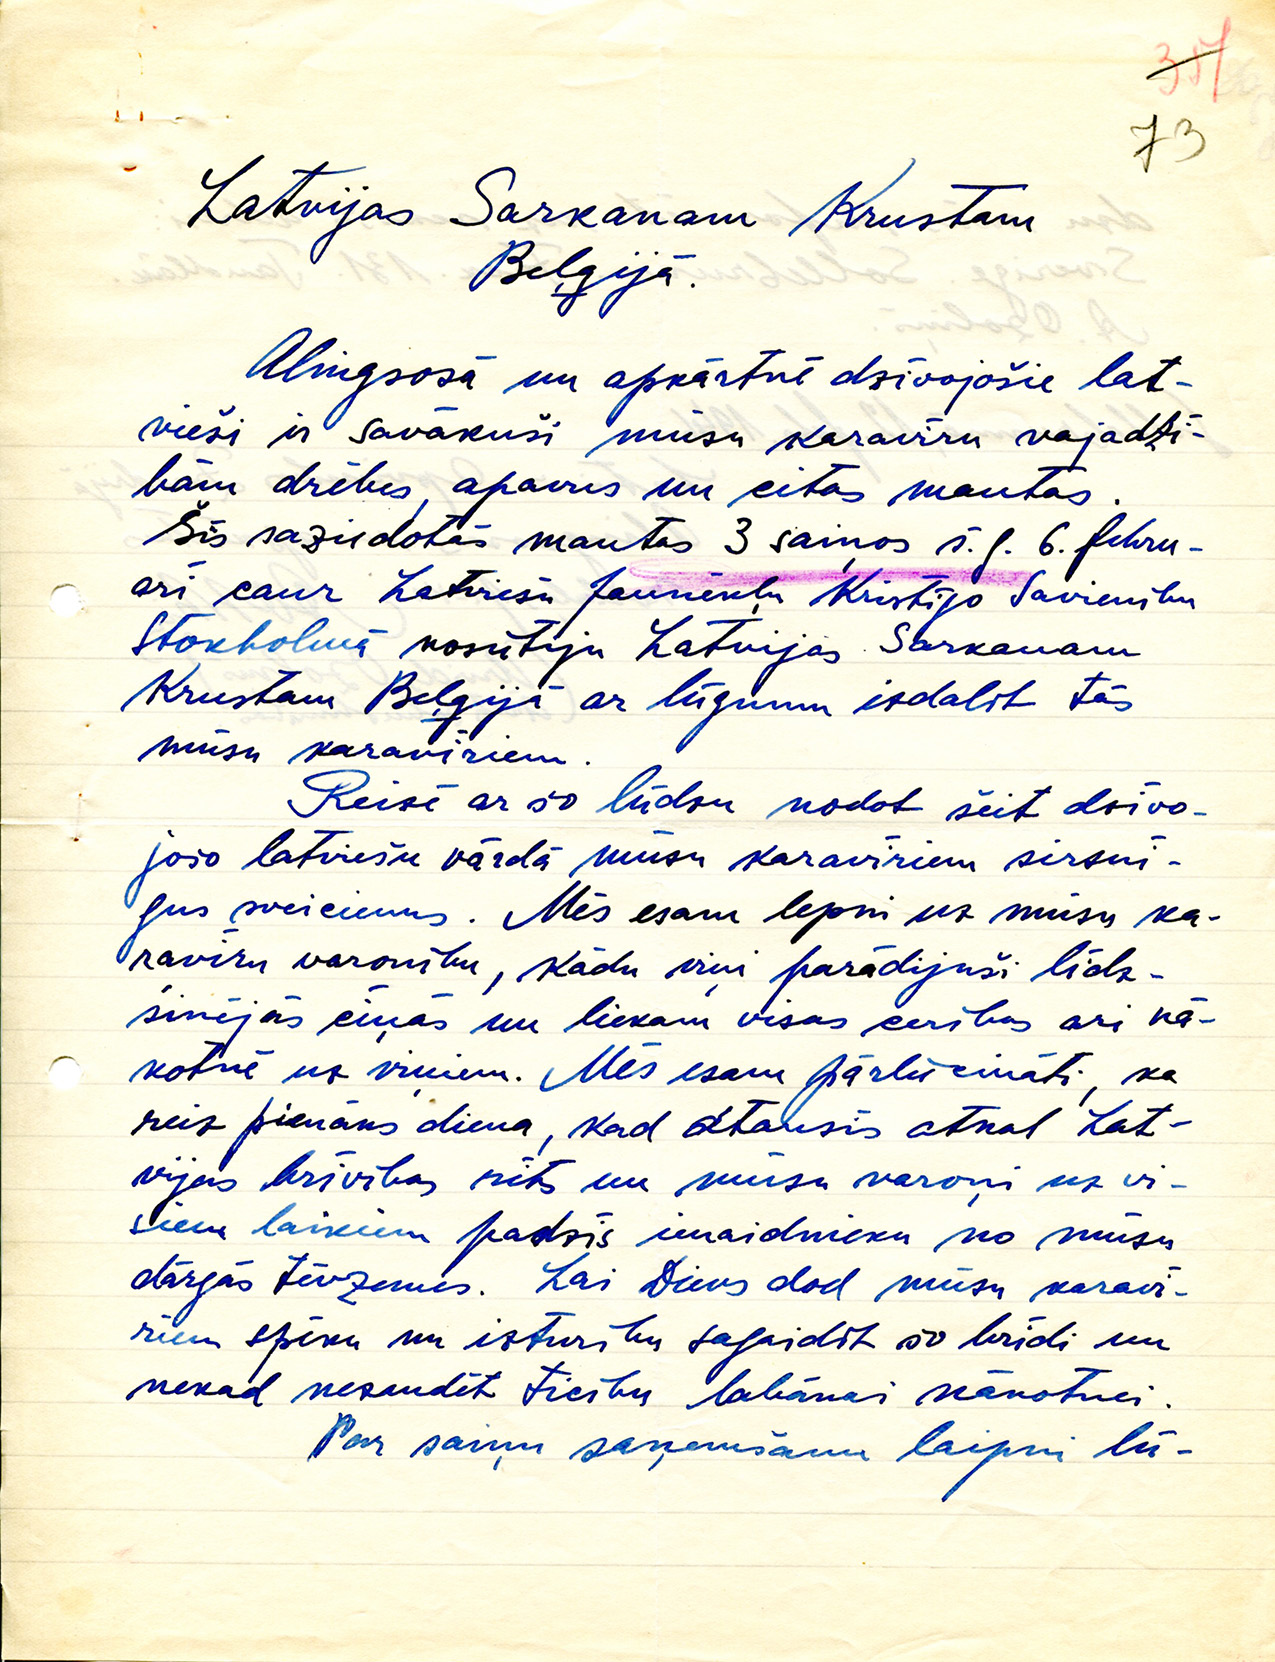 357
73
Latvijas Sarkanam Krustam
Beļģijā.
Alingsosā un apkārtnē dzīvojošie lat-
vieši ir savākuši mūsu karavīru vajadzī-
bām drēbes, apavus un citas mantas.
Šīs saziedotās mantas 3 saiņos š.g. 6. febru-
ārī caur Latviešu Jaunekļu Kristīgo Savienību
Stokholmā nosūtīju Latvijas Sarkanam
Krustam Beļģijā ar lūgumu izdalīt tās
mūsu karavīriem.
Reizē ar šo lūdzu nodot šeit dzīvo-
jošo latviešu vārdā mūsu karavīriem sirsnī-
gus sveicienus. Mēs esam lepni uz mūsu ka-
ravīru varonību, kādu viņi parādījuši līdz-
šinējās cīņās un liekam visas cerības arī nā-
kotnē uz viņiem. Mēs esam pārliecināti, ka
reiz pienāks diena, kad atausīs atkal Lat-
vijas brīvības rīts un mūsu varoņi uz vi-
siem laikiem padzīs ienaidnieku no mūsu
dārgās tēvzemes. Lai Dievs dod mūsu karavī-
riem spēku un izturību sagaidīt šo brīdi un
nekad nezaudēt ticību labākai nākotnei.
Par saiņu saņemšanu laipni lū-